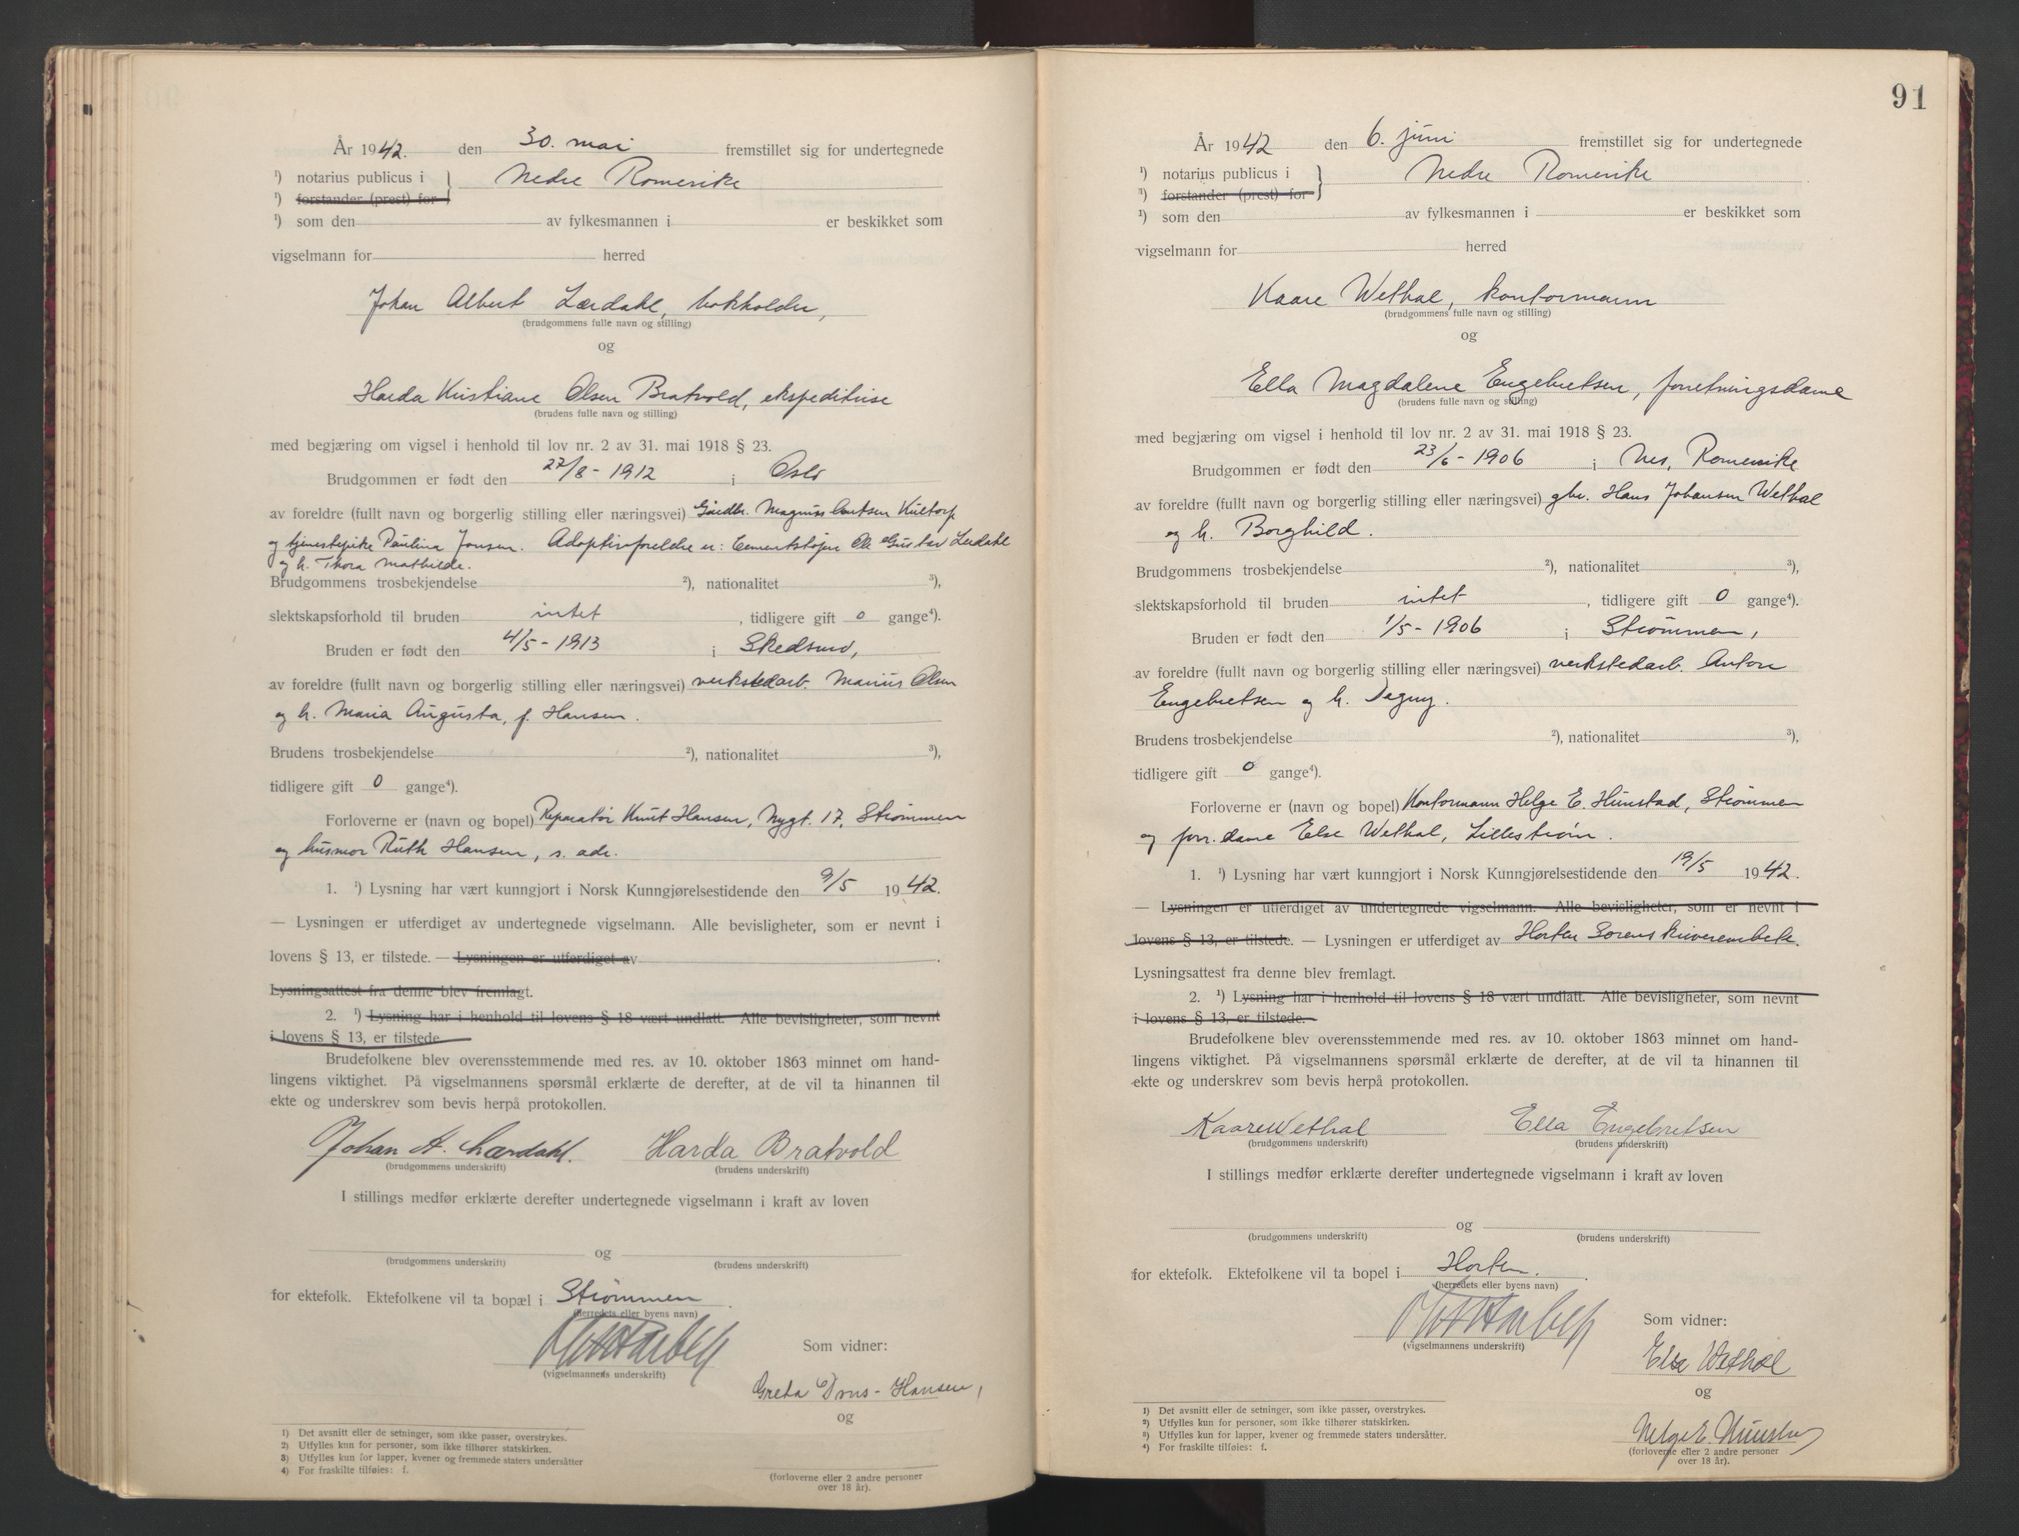 År 1942. den 30. mai fremstillet sig for undertegnede
¹) notarius publicus i } Nedre Romerike
¹) forstander (prest) for
¹) som den av fylkesmannen i er beskikket som
vigselmann for herred
Johan Albert Lærdahl, bokholder,
(brudgommens fulle navn og stilling)
og
Harda Kristiane Olsen Bratvold, ekspeditrise
(brudens fulle navn og stilling)
med begjæring om vigsel i henhold til lov nr. 2 av 31. mai 1918 § 23.
Brudgommen er født den 27/8 - 1912 i Oslo
av foreldre (fullt navn og borgerlig stilling eller næringsvei) Gårdbr. Magnus
og tjenestepike Paulina Jonsen. Adoptivforeldre er: Cementstøper Ole Gustav Lerdahl
og h. Thora Mathilde.
Brudgommens trosbekjendelse ²), nationalitet ³),
slektskapsforhold til bruden intet , tidligere gift 0 gange⁴).
Bruden er født den 4/5 - 1913 i Skedsmo,
av foreldre (fullt navn og borgerlig stilling eller næringsvei) verkstedarb. Marius Olsen
og h. Maria Augusta, f. Hansen.
Brudens trosbekjendelse ²), nationalitet ³),
tidligere gift 0 gange⁴).
Forloverne er (navn og bopel) Reparatør Knut Hansen, Nygt. 17, Strømmen
og husmor Ruth Hansen, s. adr.
1. ¹) Lysning har vært kunngjort i Norsk Kunngjørelsestidende den 9/5 1942.
— Lysningen er utferdiget av undertegnede vigselmann. Alle bevisligheter, som er nevnt i
lovens § 13, er tilstede. — Lysningen er utferdiget av .
Lysningsattest fra denne blev fremlagt.
2. ¹) Lysning har i henhold til lovens § 18 vært undlatt. Alle bevisligheter, som nevnt
i lovens § 13, er tilstede.
Brudefolkene blev overensstemmende med res. av 10. oktober 1863 minnet om hand-
lingens viktighet. På vigselmannens spørsmål erklærte de derefter, at de vil ta hinannen til
ekte og underskrev som bevis herpå protokollen.
Johan A. Lærdahl. Harda Bratvold
(brudgommens underskrift) (brudens underskrift)
I stillings medfør erklærte derefter undertegnede vigselmann i kraft av loven
og
(brudgommens underskrift) (brudens underskrift)
for ektefolk. Ektefolkene vil ta bopæl i Strømmen .
(herredets eller byens navn)
(vigselmannens underskrift)
Som vidner:
Greta -Hansen,
og
(forloverne eller 2 andre personer
over 18 år).
1) Det avsnitt eller de setninger, som ikke passer, overstrykes.
2) Utfylles kun for personer, som ikke tilhører statskirken.
3) Utfylles kun for lapper, kvener og fremmede staters undersåtter
4) For fraskilte tilføies: f.
91
År 1942 den 6. juni fremstillet sig for undertegnede
¹) notarius publicus i } Nedre Romerike
¹) forstander (prest) for
¹) som den av fylkesmannen i er beskikket som
vigselmann for herred
Kaare Wethal, kontormann
(brudgommens fulle navn og stilling)
og
Ella Magdalene Engebretsen, forretningsdame
(brudens fulle navn og stilling)
med begjæring om vigsel i henhold til lov nr. 2 av 31. mai 1918 § 23.
Brudgommen er født den 23/6 - 1906 i Nes, Romerike
av foreldre (fullt navn og borgerlig stilling eller næringsvei) gbr. Hans Johansen Wethal
og h. Borghild.
Brudgommens trosbekjendelse ²), nationalitet ³),
slektskapsforhold til bruden intet , tidligere gift 0 gange⁴).
Bruden er født den 1/5 - 1906 i Strømmen,
av foreldre (fullt navn og borgerlig stilling eller næringsvei) verkstedarb. Anton
Engebretsen og h. Dagny.
Brudens trosbekjendelse ²), nationalitet ³),
tidligere gift 0 gange⁴).
Forloverne er (navn og bopel) Kontormann Helge E. Hunstad, Strømmen
og forr.dame Else Wethal, Lillestrøm.
1. ¹) Lysning har vært kunngjort i Norsk Kunngjørelsestidende den 19/5 1942.
— Lysningen er utferdiget av undertegnede vigselmann. Alle bevisligheter, som er nevnt i
lovens § 13, er tilstede. — Lysningen er utferdiget av Horten Sorenskriverembete.
Lysningsattest fra denne blev fremlagt.
2. ¹) Lysning har i henhold til lovens § 18 vært undlatt. Alle bevisligheter, som nevnt
i lovens § 13, er tilstede.
Brudefolkene blev overensstemmende med res. av 10. oktober 1863 minnet om hand-
lingens viktighet. På vigselmannens spørsmål erklærte de derefter, at de vil ta hinannen til
ekte og underskrev som bevis herpå protokollen.
Kaare Wethal Ella Engebretsen
(brudgommens underskrift) (brudens underskrift)
I stillings medfør erklærte derefter undertegnede vigselmann i kraft av loven
og
(brudgommens underskrift) (brudens underskrift)
for ektefolk. Ektefolkene vil ta bopel i Horten.
(herredets eller byens navn)
(vigselmannens underskrift)
Som vidner:
Else Wethal
og
Helge E. Hunstad
(forloverne eller 2 andre personer
over 18 år).
1) Det avsnitt eller de setninger, som ikke passer, overstrykes.
2) Utfylles kun for personer, som ikke tilhører statskirken.
3) Utfylles kun for lapper, kvener og fremmede staters undersåtter.
4) For fraskilte tilføies: f.